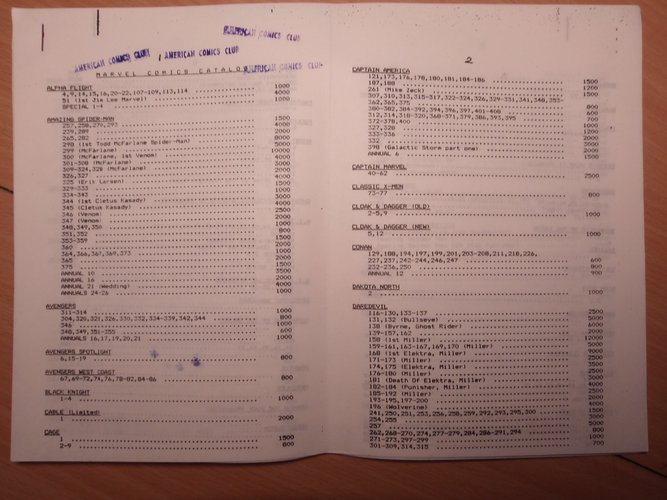 AMERICAN COMICS CLUB
AMERICAN COMICS CLUB
AMERICAN COMICS CLUB
AMERICAN COMICS CLUB
MARVEL COMICS CATALOG
ALPHA FLIGHT
4,9,14,15,16,20-22,107-109,113,114 ........ 1000
51 (1st Jim Lee Marvel) ........ 4000
SPECIAL 1-4 ........ 1000
AMAZING SPIDER-MAN
239,289 ........ 4000
265,282 ........
298 (1st Todd McFarlane Spider-Man) ........
299 (McFarlane) ........
300 (McFarlane, 1st Venom) ........
301-308 (McFarlane) ........
309-324,328 (McFarlane) ........
326,327 ........
325 (Erik Larsen) ........
329-333 ........ 1000
334-343 ........ 1000
344 (1st Cletus Kasady) ........ 1000
345 (Cletus Kasady) ........ 4000
346 (Venom) ........ 2500
347 (Venom) ........ 2000
348,349,350 ........ 1000
351,352 ........ 800
353-359 ........ 1000
360 ........ 2000
364,366,367,369,373 ........ 1000
365 ........
375 ........ 1500
ANNUAL 10 ........ 3500
ANNUAL 16 ........ 2000
ANNUAL 21 (Wedding) ........ 4000
ANNUALS 24-26 ........ 1000
AVENGERS
311-314 ........ 1000
304,320,321,326,330,332,334-339,342,344 ........ 800
346 ........ 1000
348,349,351-355 ........ 600
ANNUALS 16,17,19,20,21 ........ 1000
AVENGERS SPOTLIGHT
6,15-19 ........ 800
AVENGERS WEST COAST
67,69-72,74,76,78-82,84-86 ........ 800
BLACK KNIGHT
1-4 ........ 1000
CABLE (Limited)
1 ........ 2000
CAGE
1 ........ 1500
2-9 ........ 800
2
CAPTAIN AMERICA
121,173,176,178,180,181,184-186
187,188 ........ 1500
261 (Mike Zeck) ........ 1200
307,310,313,315-317,322,324,326,329-331,341,348,353-
362,365,375 ........ 800
380-382,384-392,394,396,397,401-408 ........ 600
312,314,318-320,368-371,379,386,393,395 ........ 700
372-378,400 ........ 1000
327,328 ........ 1200
333-336 ........
332 ........ 2000
398 (Galactic Storm part one) ........ 800
ANNUAL 6 ........ 1500
CAPTAIN MARVEL
40-62 ........ 2500
CLASSIC X-MEN
73-77 ........ 800
CLOAK & DAGGER (OLD)
2-5,9 ........ 1000
CLOAK & DAGGER (NEW)
5,12 ........ 1000
CONAN
129,188,194,197,199,201,203-208,211,218,226,
227,237,242-244,246,247 ........ 600
232-236,250 ........ 800
ANNUAL 12 ........ 900
DAKOTA NORTH
2 ........ 1000
DAREDEVIL
116-130,133-137 ........ 2500
131,132 (Bullseye) ........ 5000
138 (Byrne, Ghost Rider) ........ 6000
139-157,162 ........ 2000
158 (1st Miller) ........ 12000
159-161,163-167,169,170 (Miller) ........ 5000
168 (1st Elektra, Miller) ........ 9000
171-173 (Miller) ........ 2500
174,175 (Elektra, Miller) ........ 3500
176-180 (Miller) ........
181 (Death Of Elektra, Miller) ........
182-184 (Punisher, Miller) ........
185-192 (Miller) ........
193-195,197-200 ........
196 (Wolverine) ........
241,250,251,253,256,258,259,292,293,295,300 ........
254,255 ........
257 ........
262,268-270,274,277-279,284,286-291,294 ........ 800
271-273,297-299 ........ 1000
301-309,314,315 ........ 700